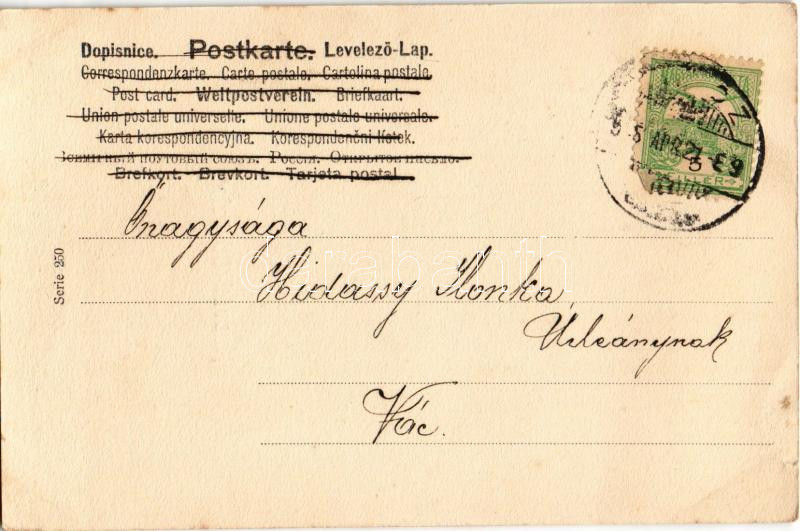 Dopisnice. Postkarte. Levelező-Lap.
Correspondenzkarte. Carte postale. Cartolina postale.
Post card. Weltpostverein. Briefkaart.
Union postale universelle. Unione postale universale.
Karta korespondencyjna. Korespondenční lístek.
Всемірный почтовый союзъ. Россія. Открытое письмо.
Brefkort. Brevkort. Tarjeta postal.
Őnagysága
Hidassy Ilonka
Urleánynak
Vác.
Serie 250
Darabanth